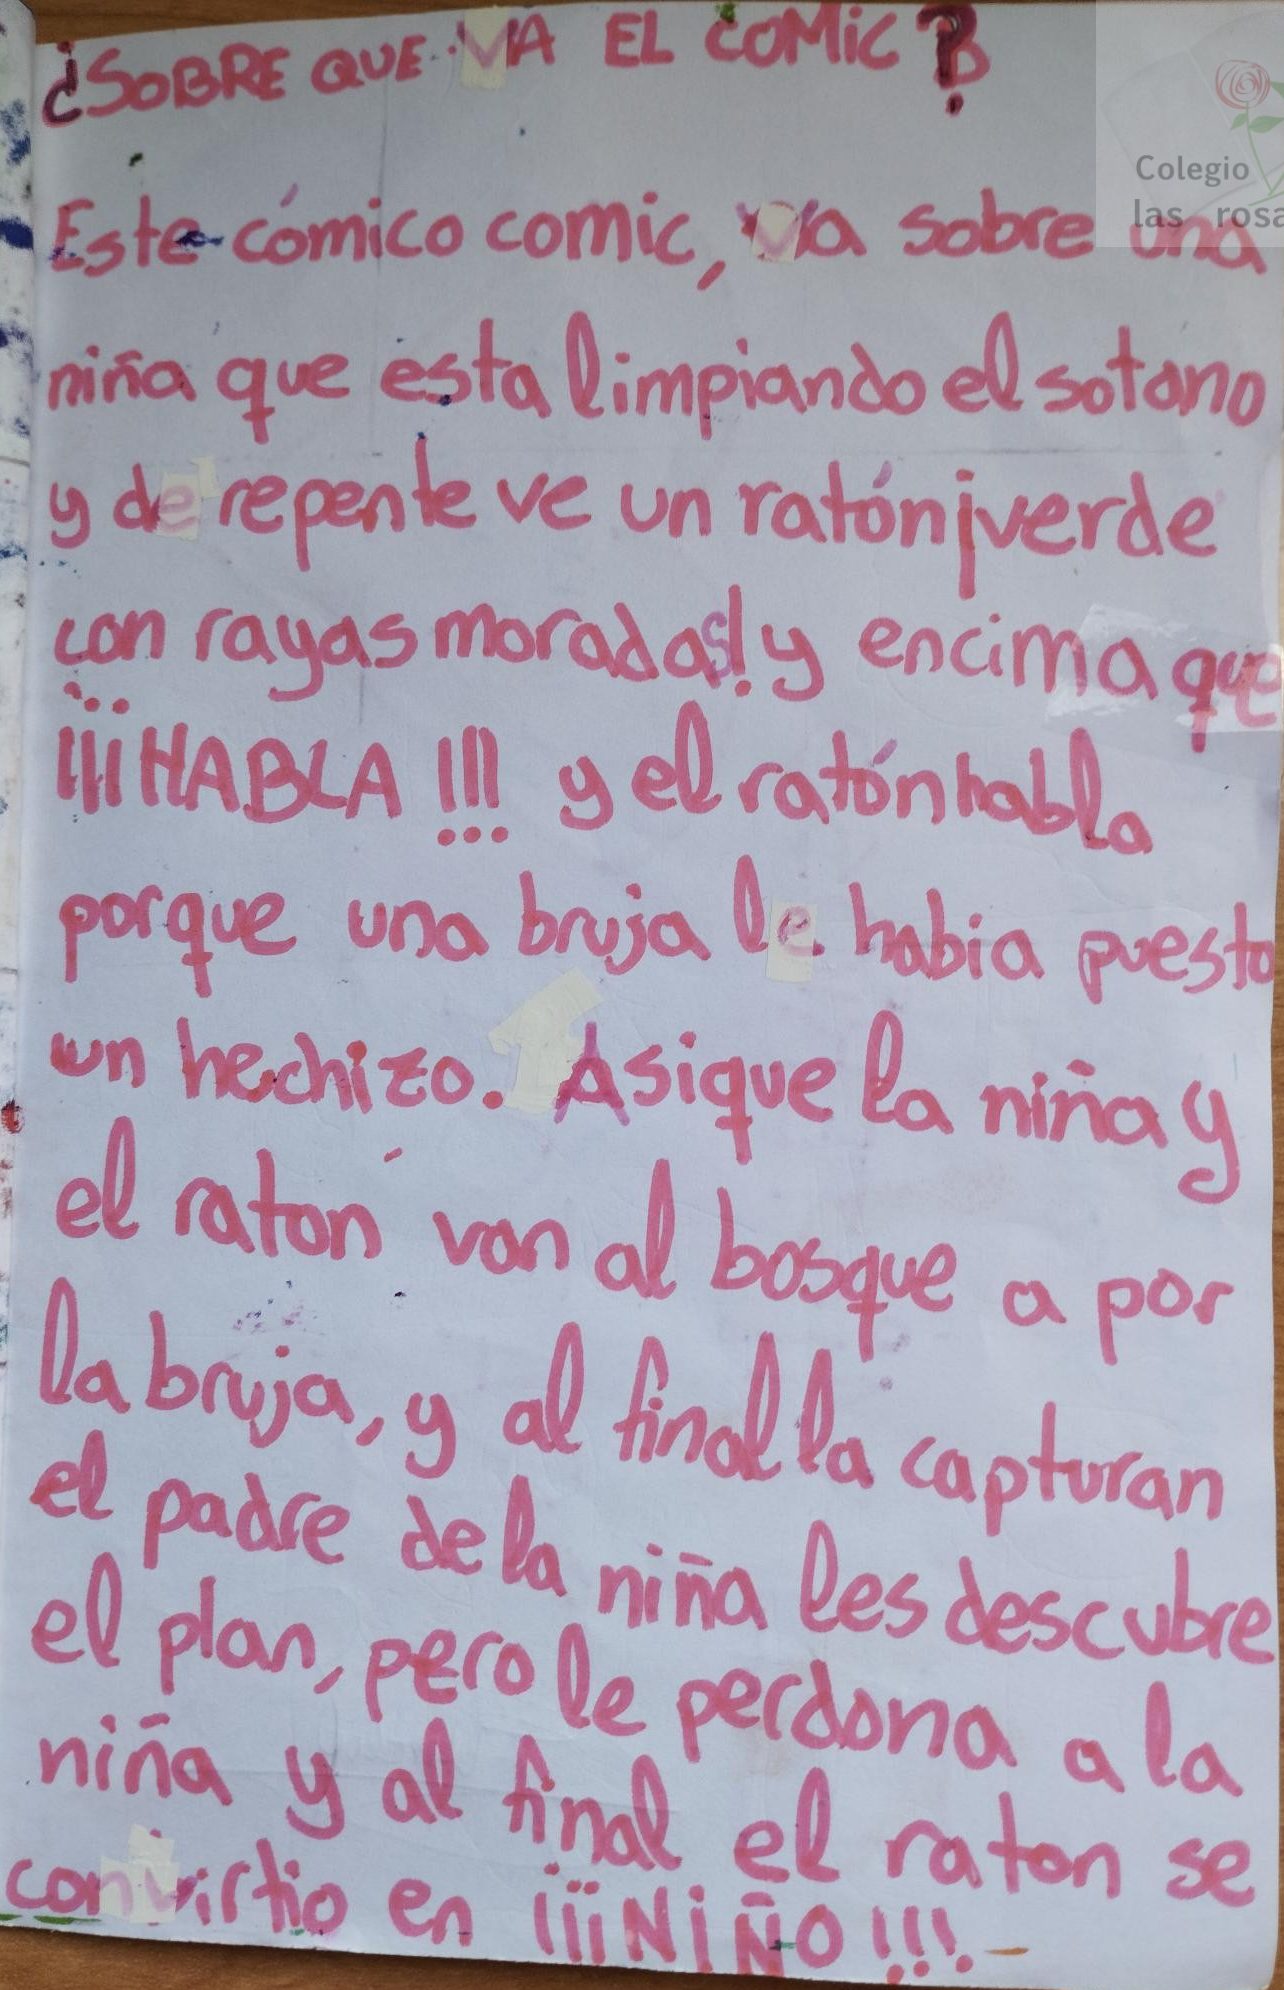 ¿SOBRE QUE VA EL COMiC?
Colegio
las rosa
Este cómico comic, va sobre una
niña que esta limpiando el sotano
y de repente ve un ratón ¡verde
con rayas moradas! y encima que
¡¡¡HABLA!!! y el ratón habla
porque una bruja le habia puesto
un hechizo. Asique la niña y
el ratón van al bosque a por
la bruja, y al final la capturan
el padre de la niña les descubre
el plan, pero le perdona a la
niña y al final el raton se
convirtio en ¡¡¡NiÑO!!!